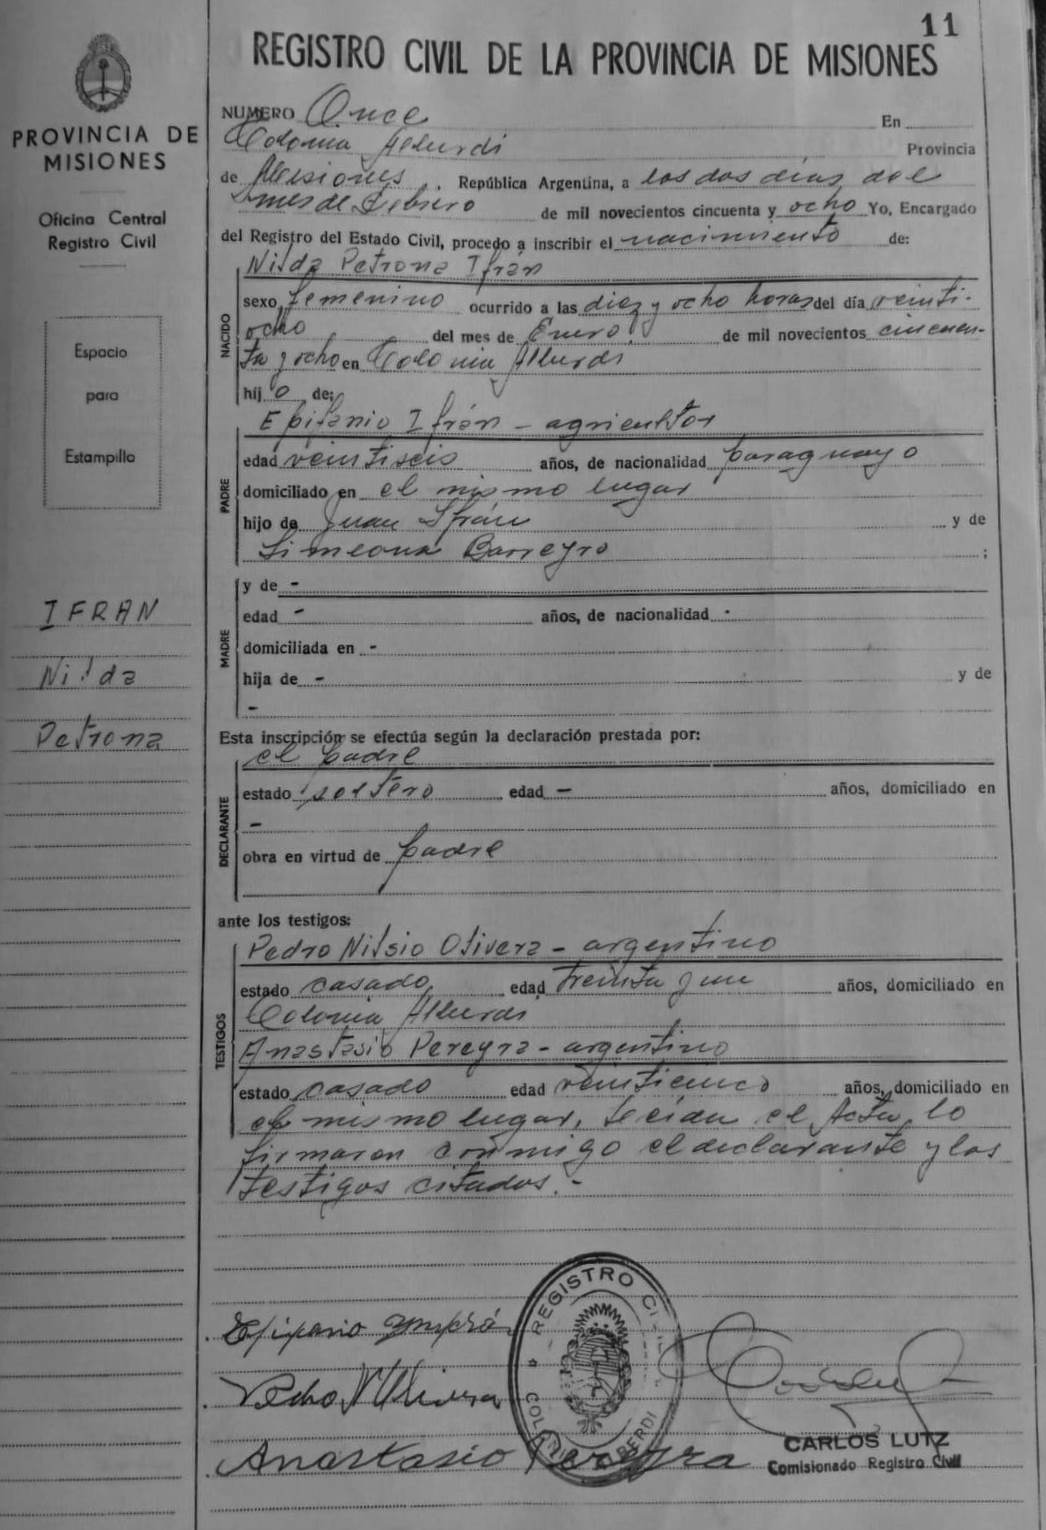 11
REGISTRO CIVIL DE LA PROVINCIA DE MISIONES
PROVINCIA DE
MISIONES
Oficina Central
Registro Civil
Espacio
para
Estampilla
IFRAN
Nilda
Petrona
NUMERO Once En
Colonia Alberdi Provincia
de Misiones. República Argentina, a los dos días del
mes de Febrero de mil novecientos cincuenta y ocho Yo, Encargado
del Registro del Estado Civil, procedo a inscribir el nacimiento de:
NACIDO
Nilda Petrona Ifrán
sexo femenino ocurrido a las diez y ocho horas del día veinti-
ocho del mes de Enero, de mil novecientos cincuen-
ta y ocho en Colonia Alberdi
hij o de;
PADRE
Epifanio Ifrán - agricultor
edad veintiseis años, de nacionalidad paraguayo
domiciliado en el mismo lugar
hijo de Juan Ifrán y de
Simeona Barreyro ;
MADRE
y de -
edad - años, de nacionalidad -
domiciliada en -
hija de - y de
-
Esta inscripción se efectúa según la declaración prestada por:
DECLARANTE
el padre
estado soltero edad - años, domiciliado en
-
obra en virtud de padre
ante los testigos:
TESTIGOS
Pedro Nilsio Olivera - argentino
estado casado edad treinta y un años, domiciliado en
Colonia Alberdi
Anastasio Pereyra - argentino
estado casado edad veinticinco años, domiciliado en
el mismo lugar, Leída el Acta, lo
firmaron conmigo el declarante y los
testigos citados.-
REGISTRO CIVIL
COLONIA ALBERDI
Epifanio
Pedro N Olivera
Anastasio Pereyra
CARLOS LUTZ
Comisionado Registro Civil